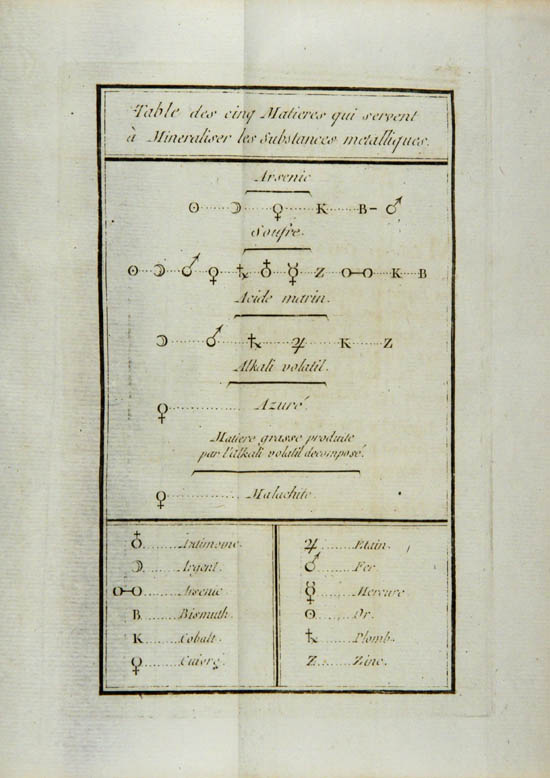 Table des cinq Matieres qui servent
à Mineraliser les Substances metalliques.
Arsenic
☉ ☽ ♀ K B ♂
Soufre.
☉ ☽ ♂ ♀ ♄ ♁ ☿ Z O-O K B
Acide marin.
☽ ♂ ♄ ♃ K Z
Alkali volatil.
♀ Azuré.
Matiere grasse produite
par l'alkali volatil decomposé.
♀ Malachite.
♁ Antimoine.
☽ Argent.
O-O Arsenic.
B Bismuth.
K Cobalt.
♀ Cuivre.
♃ Etain.
♂ Fer.
☿ Mercure.
☉ Or.
♄ Plomb.
Z Zinc.